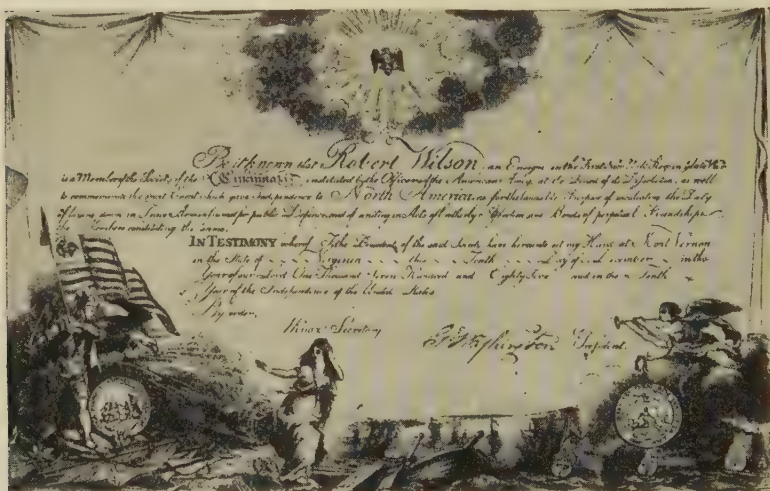 Be it known that Robert Wilson an Ensign in the First New York
is a Member of the Society of the Cincinnati; instituted by the Officers of the American Army, at the Period of its Dissolution, as well
to commemorate the great Event which gave Independence to North America, as for the laudable Purpose of inculcating the Duty
of laying down in Peace Arms assumed for public Defence, and of uniting in Acts of brotherly Affection and Bonds of perpetual Friendship
the Members constituting the same.
IN TESTIMONY whereof I, the President of the said Society, have hereunto set my Hand at Mount Vernon
in the State of Virginia this Tenth Day of December in the
Year of our Lord One Thousand Seven Hundred and Eighty Five and in the Tenth
Year of the Independence of the United States.
By order,
Knox Secretary
G. Washington President.